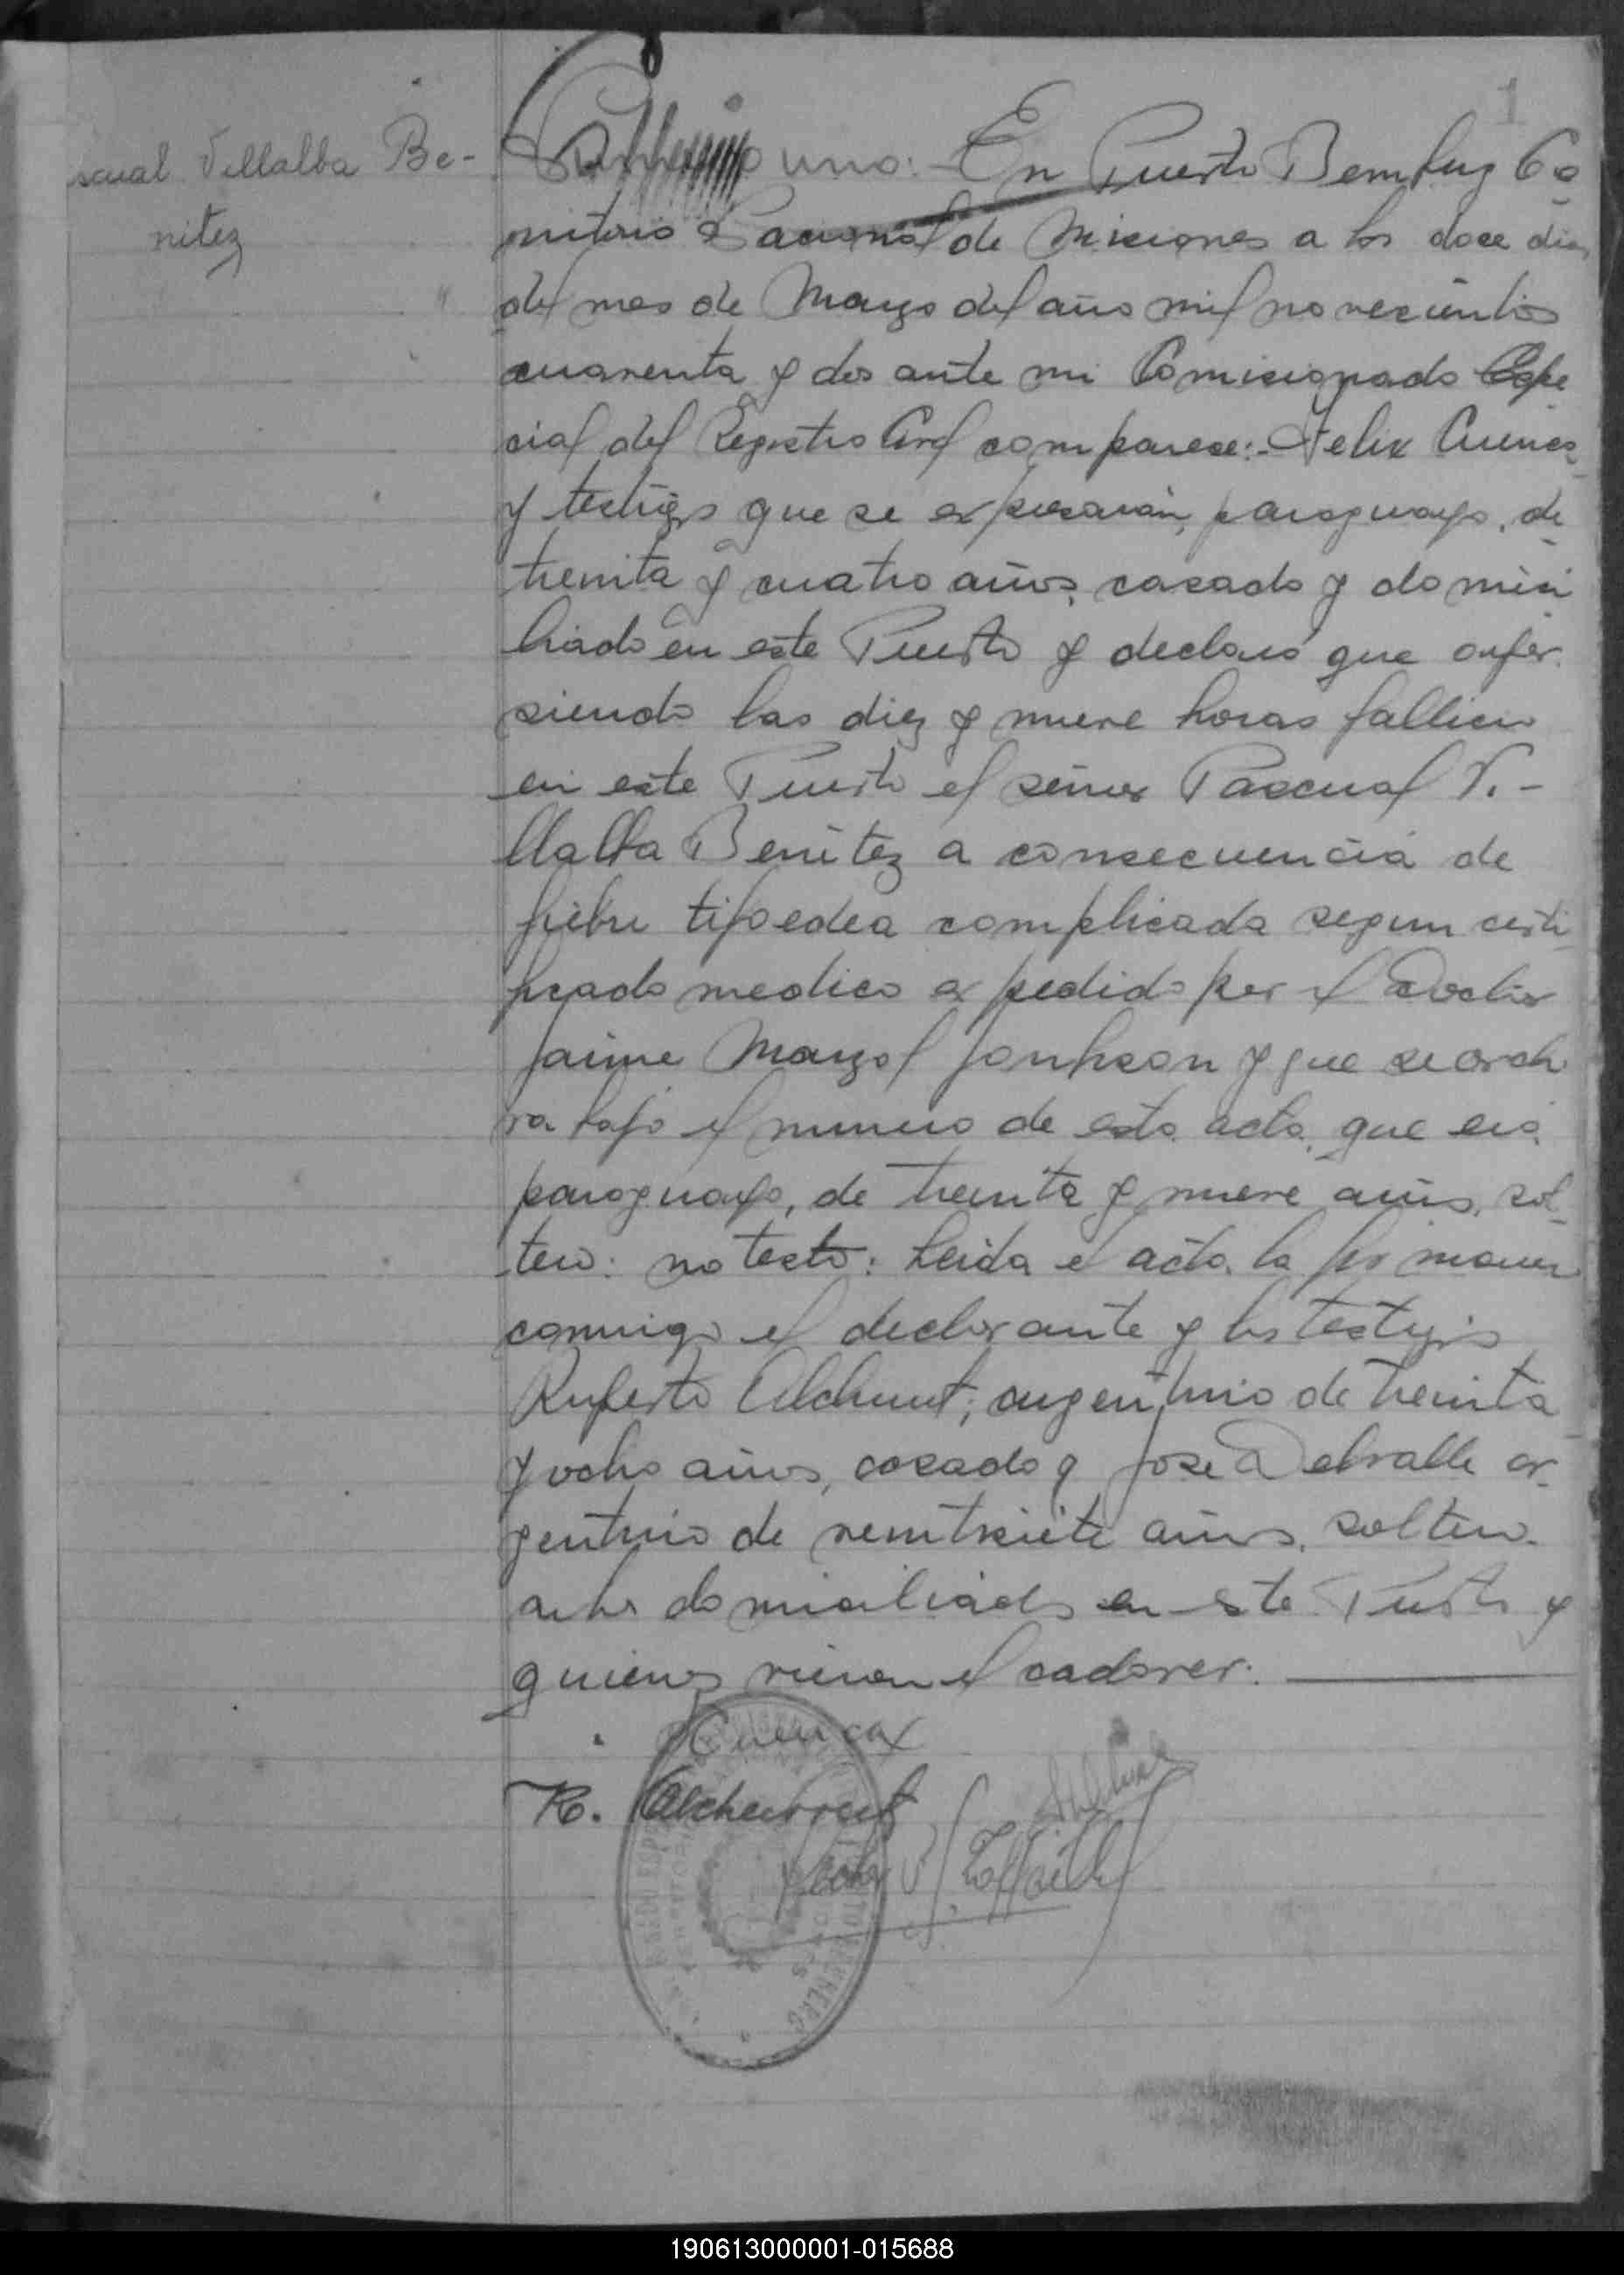 1
scual Villalba Be-
nitez
Número uno: En Puerto Bemberg Te
rritorio Nacional de Misiones a los doce dias
del mes de Marzo del año mil novecientos
cuarenta y dos ante mi Comisionado Espe
cial del Registro Civil comparece:- Felix Cuenca
y testigos que se expresarán, paraguayo, de
treinta y cuatro años, casado y domici
liado en este Puerto y declaró que ayer
siendo las diez y nueve horas fallicio
en este Puerto el señor Pascual Vi-
llalba Benitez a consecuencia de
fiebre tifoedea complicada segun certi
ficado medico expedido por el Doctor
Jaime Marzol Jonhson y que se archi
va bajo el numero de esta acta, que era
paraguayo, de treinta y nueve años, sol
tero: no testo: Leida el acta la firmaron
conmigo el declarante y los testigos
Ruperto Alchurrut, argentino de treinta
y ocho años, casado y Jose Delvalle ar
gentino de veintisiete años, soltero
ambos domiciliados en este Puerto y
quienes vieron el cadaver.
Cuenca
R. Alchurrut
190613000001-015688